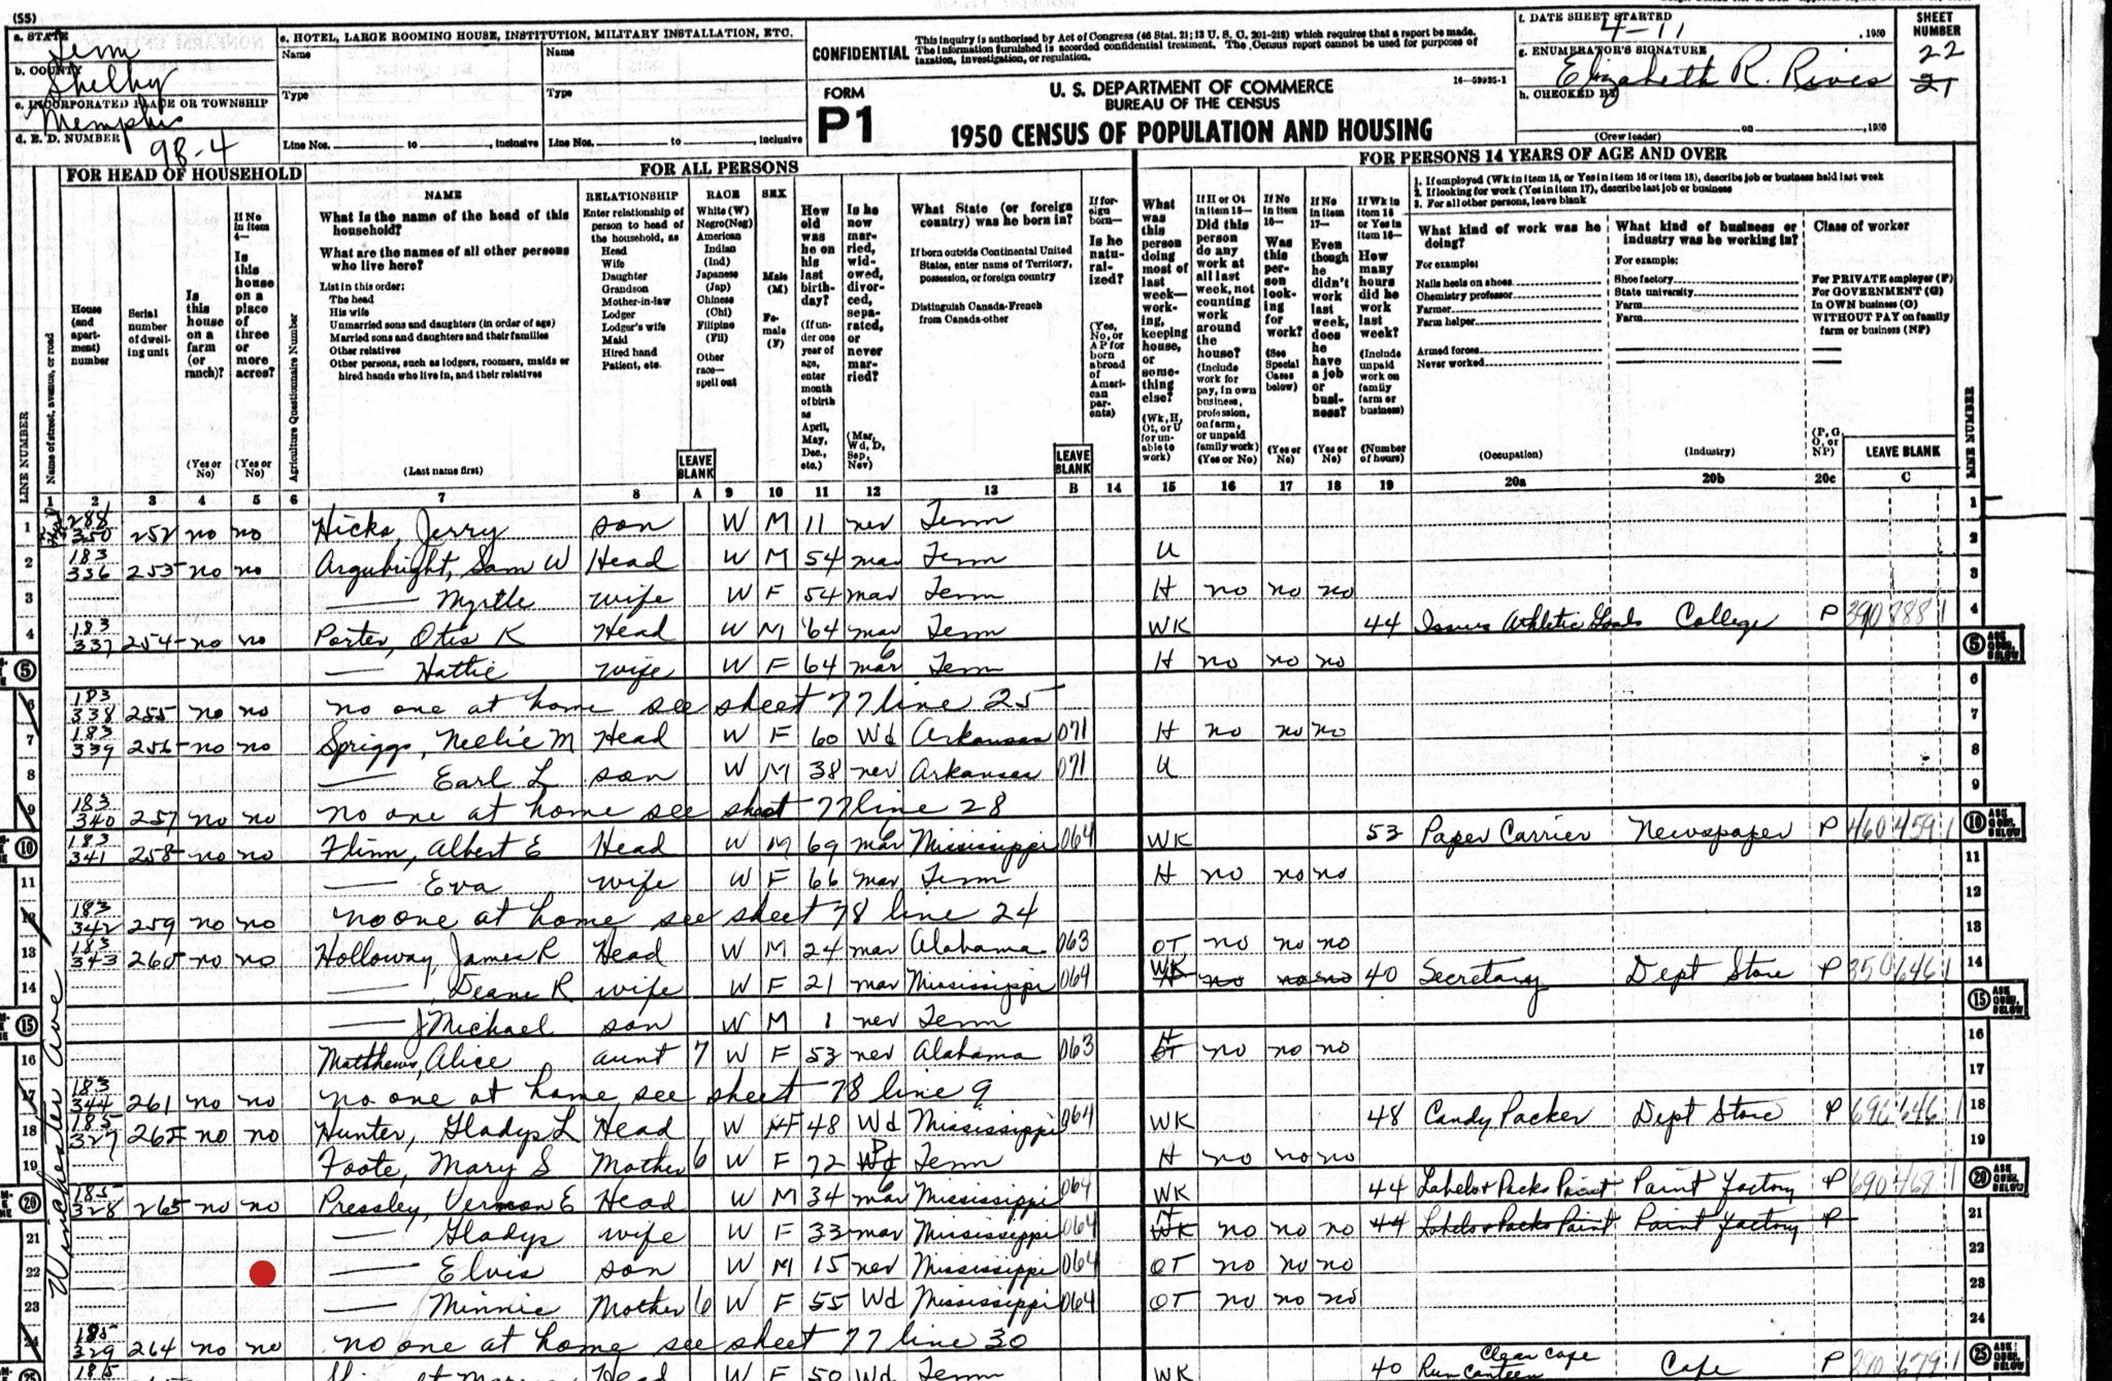 (S5)
a. STATE Tenn
b. COUNTY Shelby
c. INCORPORATED PLACE OR TOWNSHIP Memphis
d. E. D. NUMBER 98-4
e. HOTEL, LARGE ROOMING HOUSE, INSTITUTION, MILITARY INSTALLATION, ETC.
Name Name
Type Type
Line Nos. to , inclusive Line Nos. to , inclusive
CONFIDENTIAL This inquiry is authorized by Act of Congress (46 Stat. 21; 13 U. S. C. 201-218) which requires that a report be made. The information furnished is accorded confidential treatment. The Census report cannot be used for purposes of taxation, investigation, or regulation.
FORM P1
U. S. DEPARTMENT OF COMMERCE
BUREAU OF THE CENSUS
1950 CENSUS OF POPULATION AND HOUSING
16-59925-1
f. DATE SHEET STARTED 4-11 , 1950
g. ENUMERATOR'S SIGNATURE Elizabeth R. Rives
h. CHECKED BY
(Crew leader) on , 1950
SHEET NUMBER 22 21
FOR HEAD OF HOUSEHOLD FOR ALL PERSONS FOR PERSONS 14 YEARS OF AGE AND OVER
LINE NUMBER
Name of street, avenue, or road
House (and apartment) number
Serial number of dwelling unit
Is this house on a farm (or ranch)? (Yes or No)
If No in item 4— Is this house on a place of three or more acres? (Yes or No)
Agriculture Questionnaire Number
NAME
What is the name of the head of this household?
What are the names of all other persons who live here?
List in this order:
The head
His wife
Unmarried sons and daughters (in order of age)
Married sons and daughters and their families
Other relatives
Other persons, such as lodgers, roomers, maids or hired hands who live in, and their relatives
(Last name first)
RELATIONSHIP
Enter relationship of person to head of the household, as
Head
Wife
Daughter
Grandson
Mother-in-law
Lodger
Lodger's wife
Maid
Hired hand
Patient, etc.
LEAVE BLANK
RACE
White (W)
Negro (Neg)
American Indian (Ind)
Japanese (Jap)
Chinese (Chi)
Filipino (Fil)
Other race— spell out
SEX
Male (M)
Female (F)
How old was he on his last birthday? (If under one year of age, enter month of birth as April, May, Dec., etc.)
Is he now married, widowed, divorced, separated, or never married? (Mar, Wd, D, Sep, Nev)
What State (or foreign country) was he born in?
If born outside Continental United States, enter name of Territory, possession, or foreign country
Distinguish Canada-French from Canada-other
LEAVE BLANK
If foreign born— Is he naturalized? (Yes, No, or AP for born abroad of American parents)
What was this person doing most of last week—working, keeping house, or something else? (Wk, H, Ot, or U for unable to work)
If H or Ot in item 15— Did this person do any work at all last week, not counting work around the house? (Include work for pay, in own business, profession, on farm, or unpaid family work) (Yes or No)
If No in item 16— Was this person looking for work? (See Special Cases below) (Yes or No)
If No in item 17— Even though he didn't work last week, does he have a job or business? (Yes or No)
If Wk in item 15 or Yes in item 16— How many hours did he work last week? (Include unpaid work on family farm or business) (Number of hours)
1. If employed (Wk in item 15, or Yes in item 16 or item 18), describe job or business held last week
2. If looking for work (Yes in item 17), describe last job or business
3. For all other persons, leave blank
What kind of work was he doing?
For example:
Nails heels on shoes
Chemistry professor
Farmer
Farm helper
Armed forces
Never worked
(Occupation)
What kind of business or industry was he working in?
For example:
Shoe factory
State university
Farm
Farm
(Industry)
Class of worker
For PRIVATE employer (P)
For GOVERNMENT (G)
In OWN business (O)
WITHOUT PAY on family farm or business (NP)
(P, G, O, or NP)
LEAVE BLANK
LINE NUMBER
1 2 3 4 5 6 7 8 A 9 10 11 12 13 B 14 15 16 17 18 19 20a 20b 20c C
1 288 350 252 no no Hicks, Jerry son W M 11 nev Tenn 1
2 183 336 253 no no Argubright, Sam W Head W M 54 mar Tenn U 2
3 Myrtle wife W F 54 mar Tenn H no no no 3
4 183 337 254 no no Porter, Otis K Head W M 64 mar Tenn WK 44 Issues Athletic Goods College P 390 888 1 4
5 Hattie wife W F 64 mar Tenn H no no no 5 ASK QUES. BELOW
6 183 338 255 no no no one at home see sheet 77 line 25 6
7 183 339 256 no no Spriggs, Nellie M Head W F 60 Wd Arkansas 071 H no no no 7
8 Earl L son W M 38 nev Arkansas 071 U 8
9 183 340 257 no no no one at home see sheet 77 line 28 9
10 183 341 258 no no Flinn, Albert E Head W M 69 mar Mississippi 064 WK 53 Paper Carrier Newspaper P 460 459 1 10 ASK QUES. BELOW
11 Eva wife W F 66 mar Tenn H no no no 11
12 183 342 259 no no no one at home see sheet 78 line 24 12
13 183 343 260 no no Holloway, James R Head W M 24 mar Alabama 063 OT no no no 13
14 Deane R wife W F 21 mar Mississippi 064 WK H no no no 40 Secretary Dept Store P 350 646 1 14
15 J Michael son W M 1 nev Tenn 15 ASK QUES. BELOW
16 Matthews, Alice aunt 7 W F 53 nev Alabama 063 H OT no no no 16
17 183 344 261 no no no one at home see sheet 78 line 9 17
18 185 327 262 no no Hunter, Gladys L Head W F 48 Wd Mississippi 064 WK 48 Candy Packer Dept Store P 690 646 1 18
19 Foote, Mary S Mother 6 W F 72 D Wd Tenn H no no no 19
20 185 328 263 no no Pressley, Vernon E Head W M 34 mar Mississippi 064 WK 44 Labels & Packs Paint Paint Factory P 690 468 1 20 ASK QUES. BELOW
21 Gladys wife W F 33 mar Mississippi 064 H WK no no no 44 Labels & Packs Paint Paint Factory P 21
22 Elvis son W M 15 nev Mississippi 064 OT no no no 22
23 Minnie Mother 6 W F 55 Wd Mississippi 064 OT no no no 23
24 185 329 264 no no no one at home see sheet 77 line 30 24
25 185 Head W F 50 Wd Tenn WK 40 Clean Cafe Run Canteen Cafe P 290 679 1 25 ASK QUES. BELOW
Winchester Ave